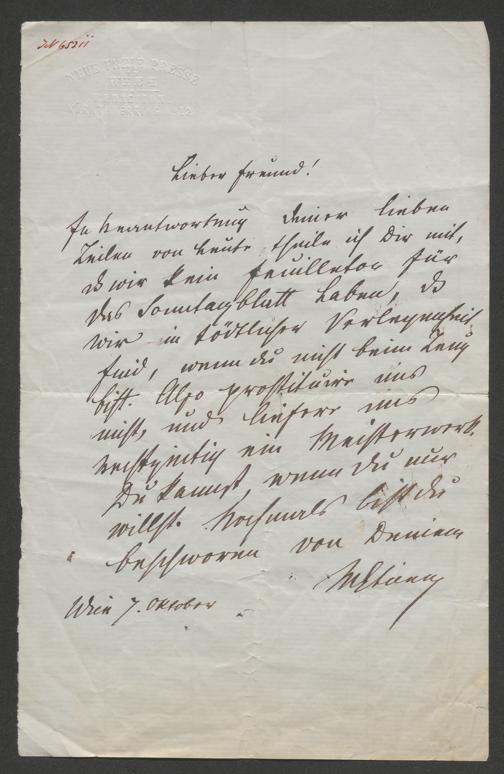 JN 65311
NEUE FREIE PRESSE
WIEN
Lieber Freund!
In Beantwortung Deiner lieben
Zeilen von heute theile ich Dir mit,
daß wir kein Feuilleton für
das Sonntagsblatt haben, daß
wir in tödtlicher Verlegenheit
sind, wenn du nicht beim Zeug
bist. Also prostituire uns
nicht, und liefere uns
rechtzeitig ein Meisterwerk.
Du kannst, wenn Du nur
willst. Nochmals bist du
beschworen von Deinem
Wien 7. Oktober